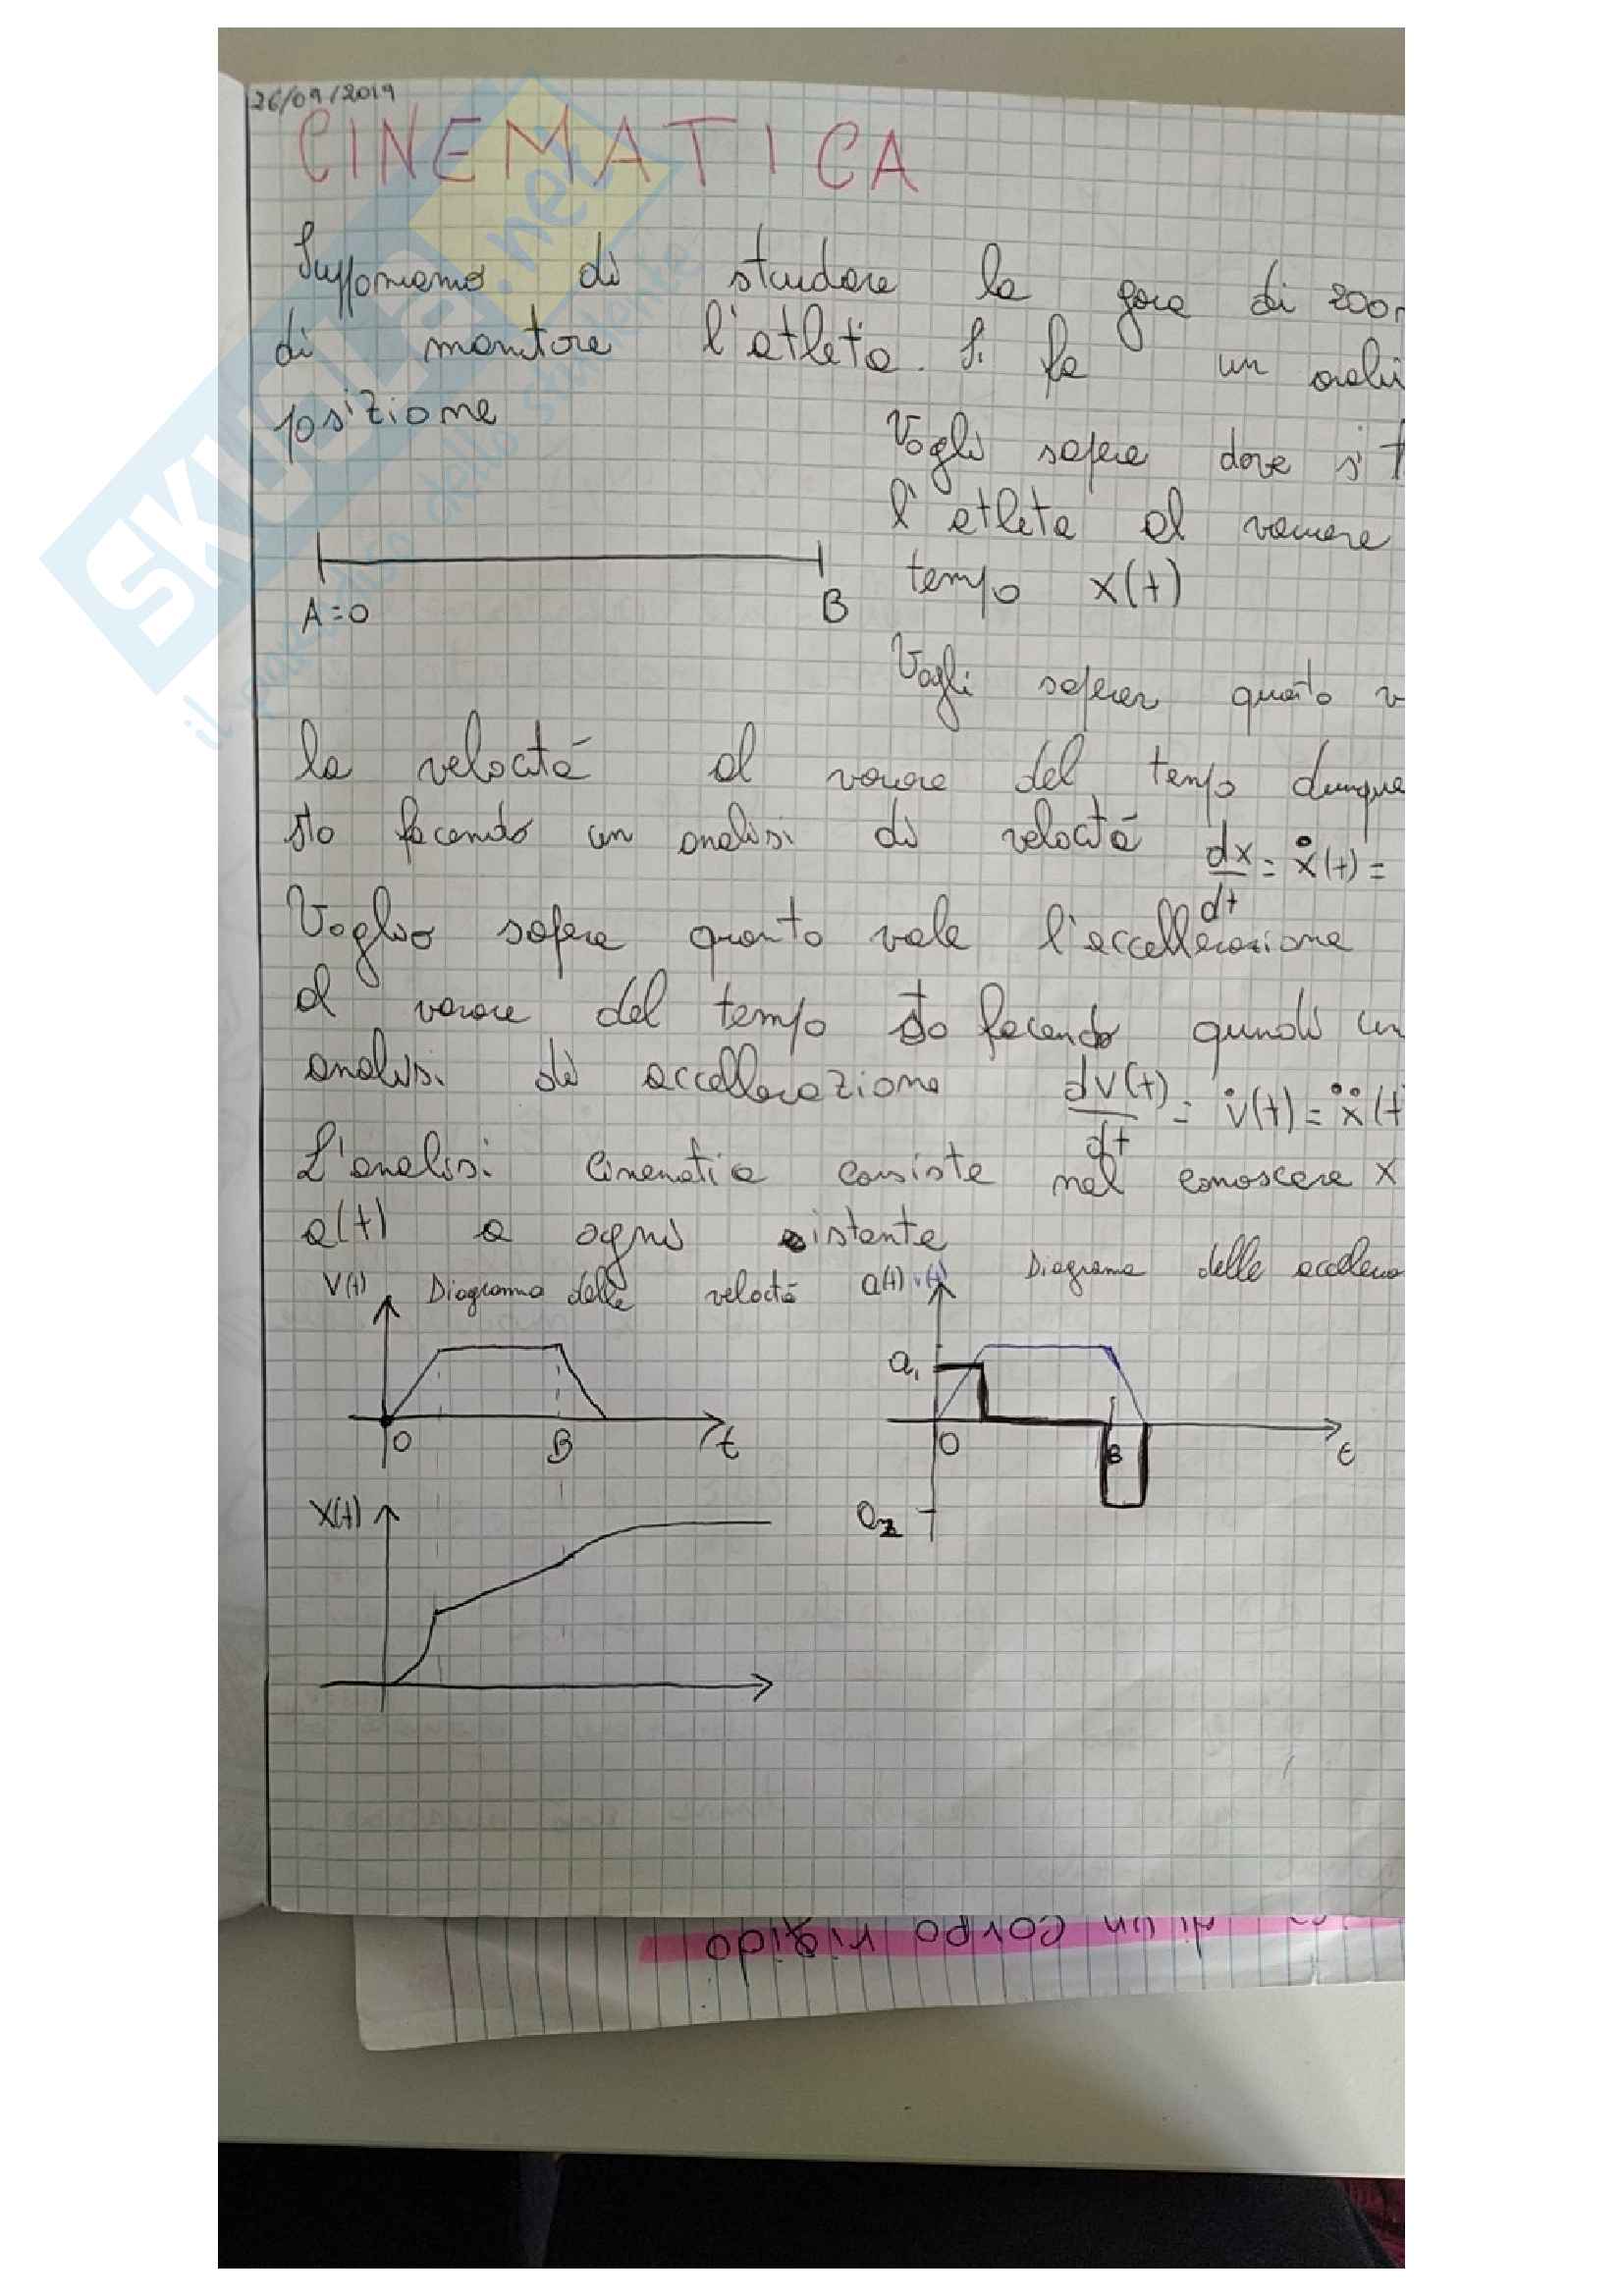 26/09/2019
CINEMATICA
Supponiamo di studiare la gara di 200m
di monitore l'atleta. Si fa un anali
posizione
Vogli sapere dove si t
l'atleta al variare
tempo x(t)
A=0 B
Vogli saperer quanto v
la velocitá al variare del tempo dunque
sto facendo un analisi di velocitá dx/dt = ẋ(t) =
Voglio sapere quanto vale l'accellerazione
al variare del tempo sto facendo quindi un
analisi di accellerazione dV(t)/dt = v̇(t) = ẍ(t
L'analisi cinematica consiste nel conoscere x
a(t) a ogni istante
V(t) Diagramma delle velocitá a(t) v(t) Diagramma delle accellera
a₁
O B t O B t
X(t) a₂
di un corpo rigido
SKUOLA.net
il paradiso dello studente